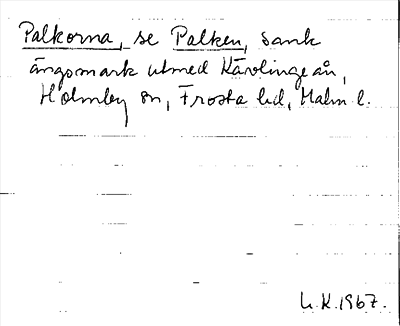 Palkorna, se Palken, sank
ängsmark utmed Kävlingeån,
Holmby sn, Frosta hd, Malm. l.
L.K. 1967.